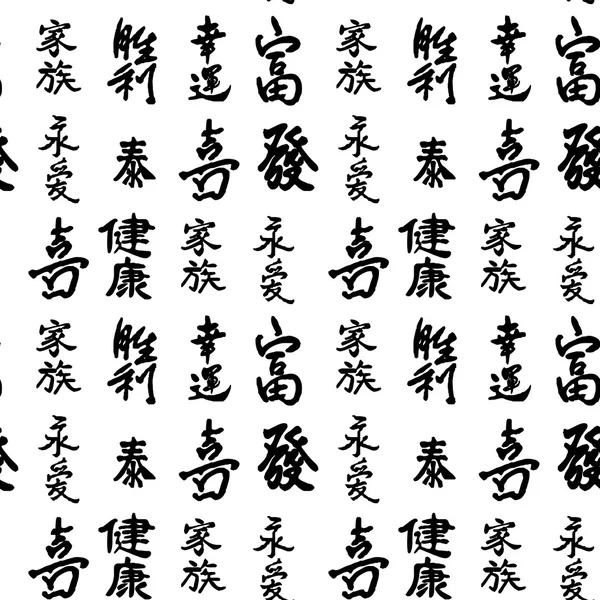 家族 胜利 幸運 富 家族 胜利 幸運 富
永爱 泰 喜 發 永爱 泰 喜 發
喜 健康 家族 永爱 喜 健康 家族 永爱
家族 胜利 幸運 富 家族 胜利 幸運 富
永爱 泰 喜 發 永爱 泰 喜 發
喜 健康 家族 永爱 喜 健康 家族 永爱